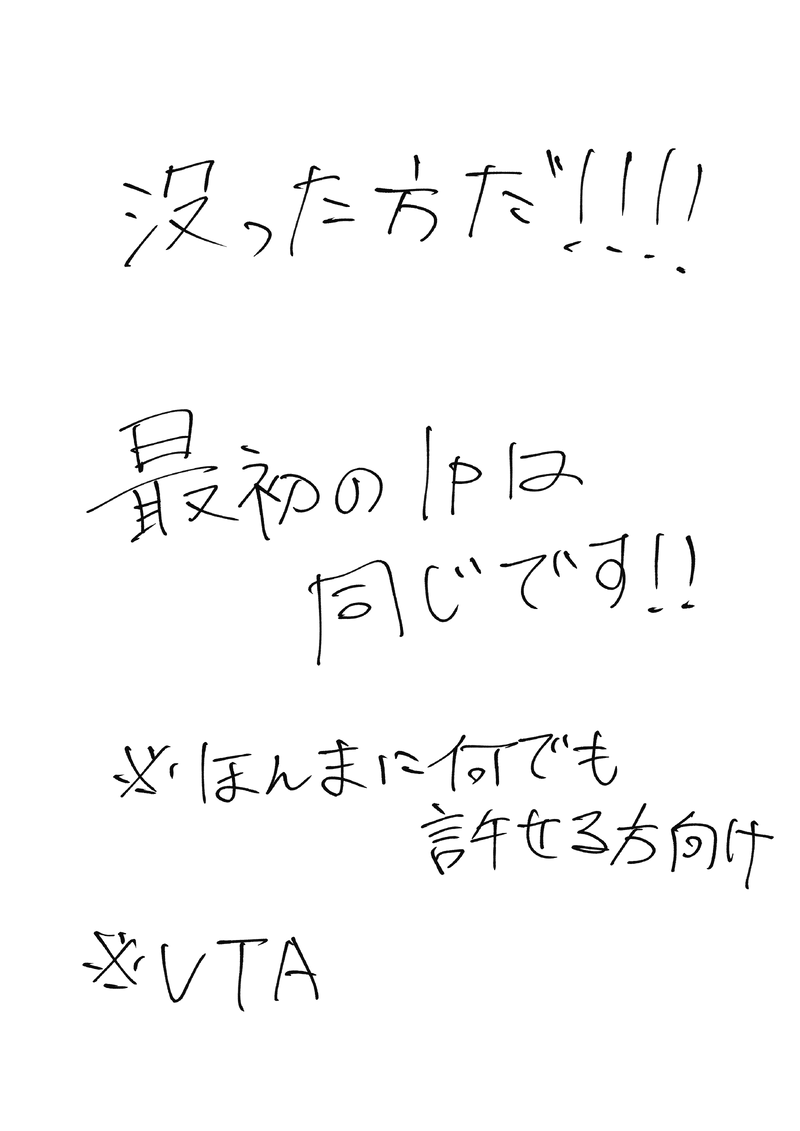 没った方だ!!!!
最初の1pは
同じです!!
※ほんまに何でも
許せる方向け
※VTA